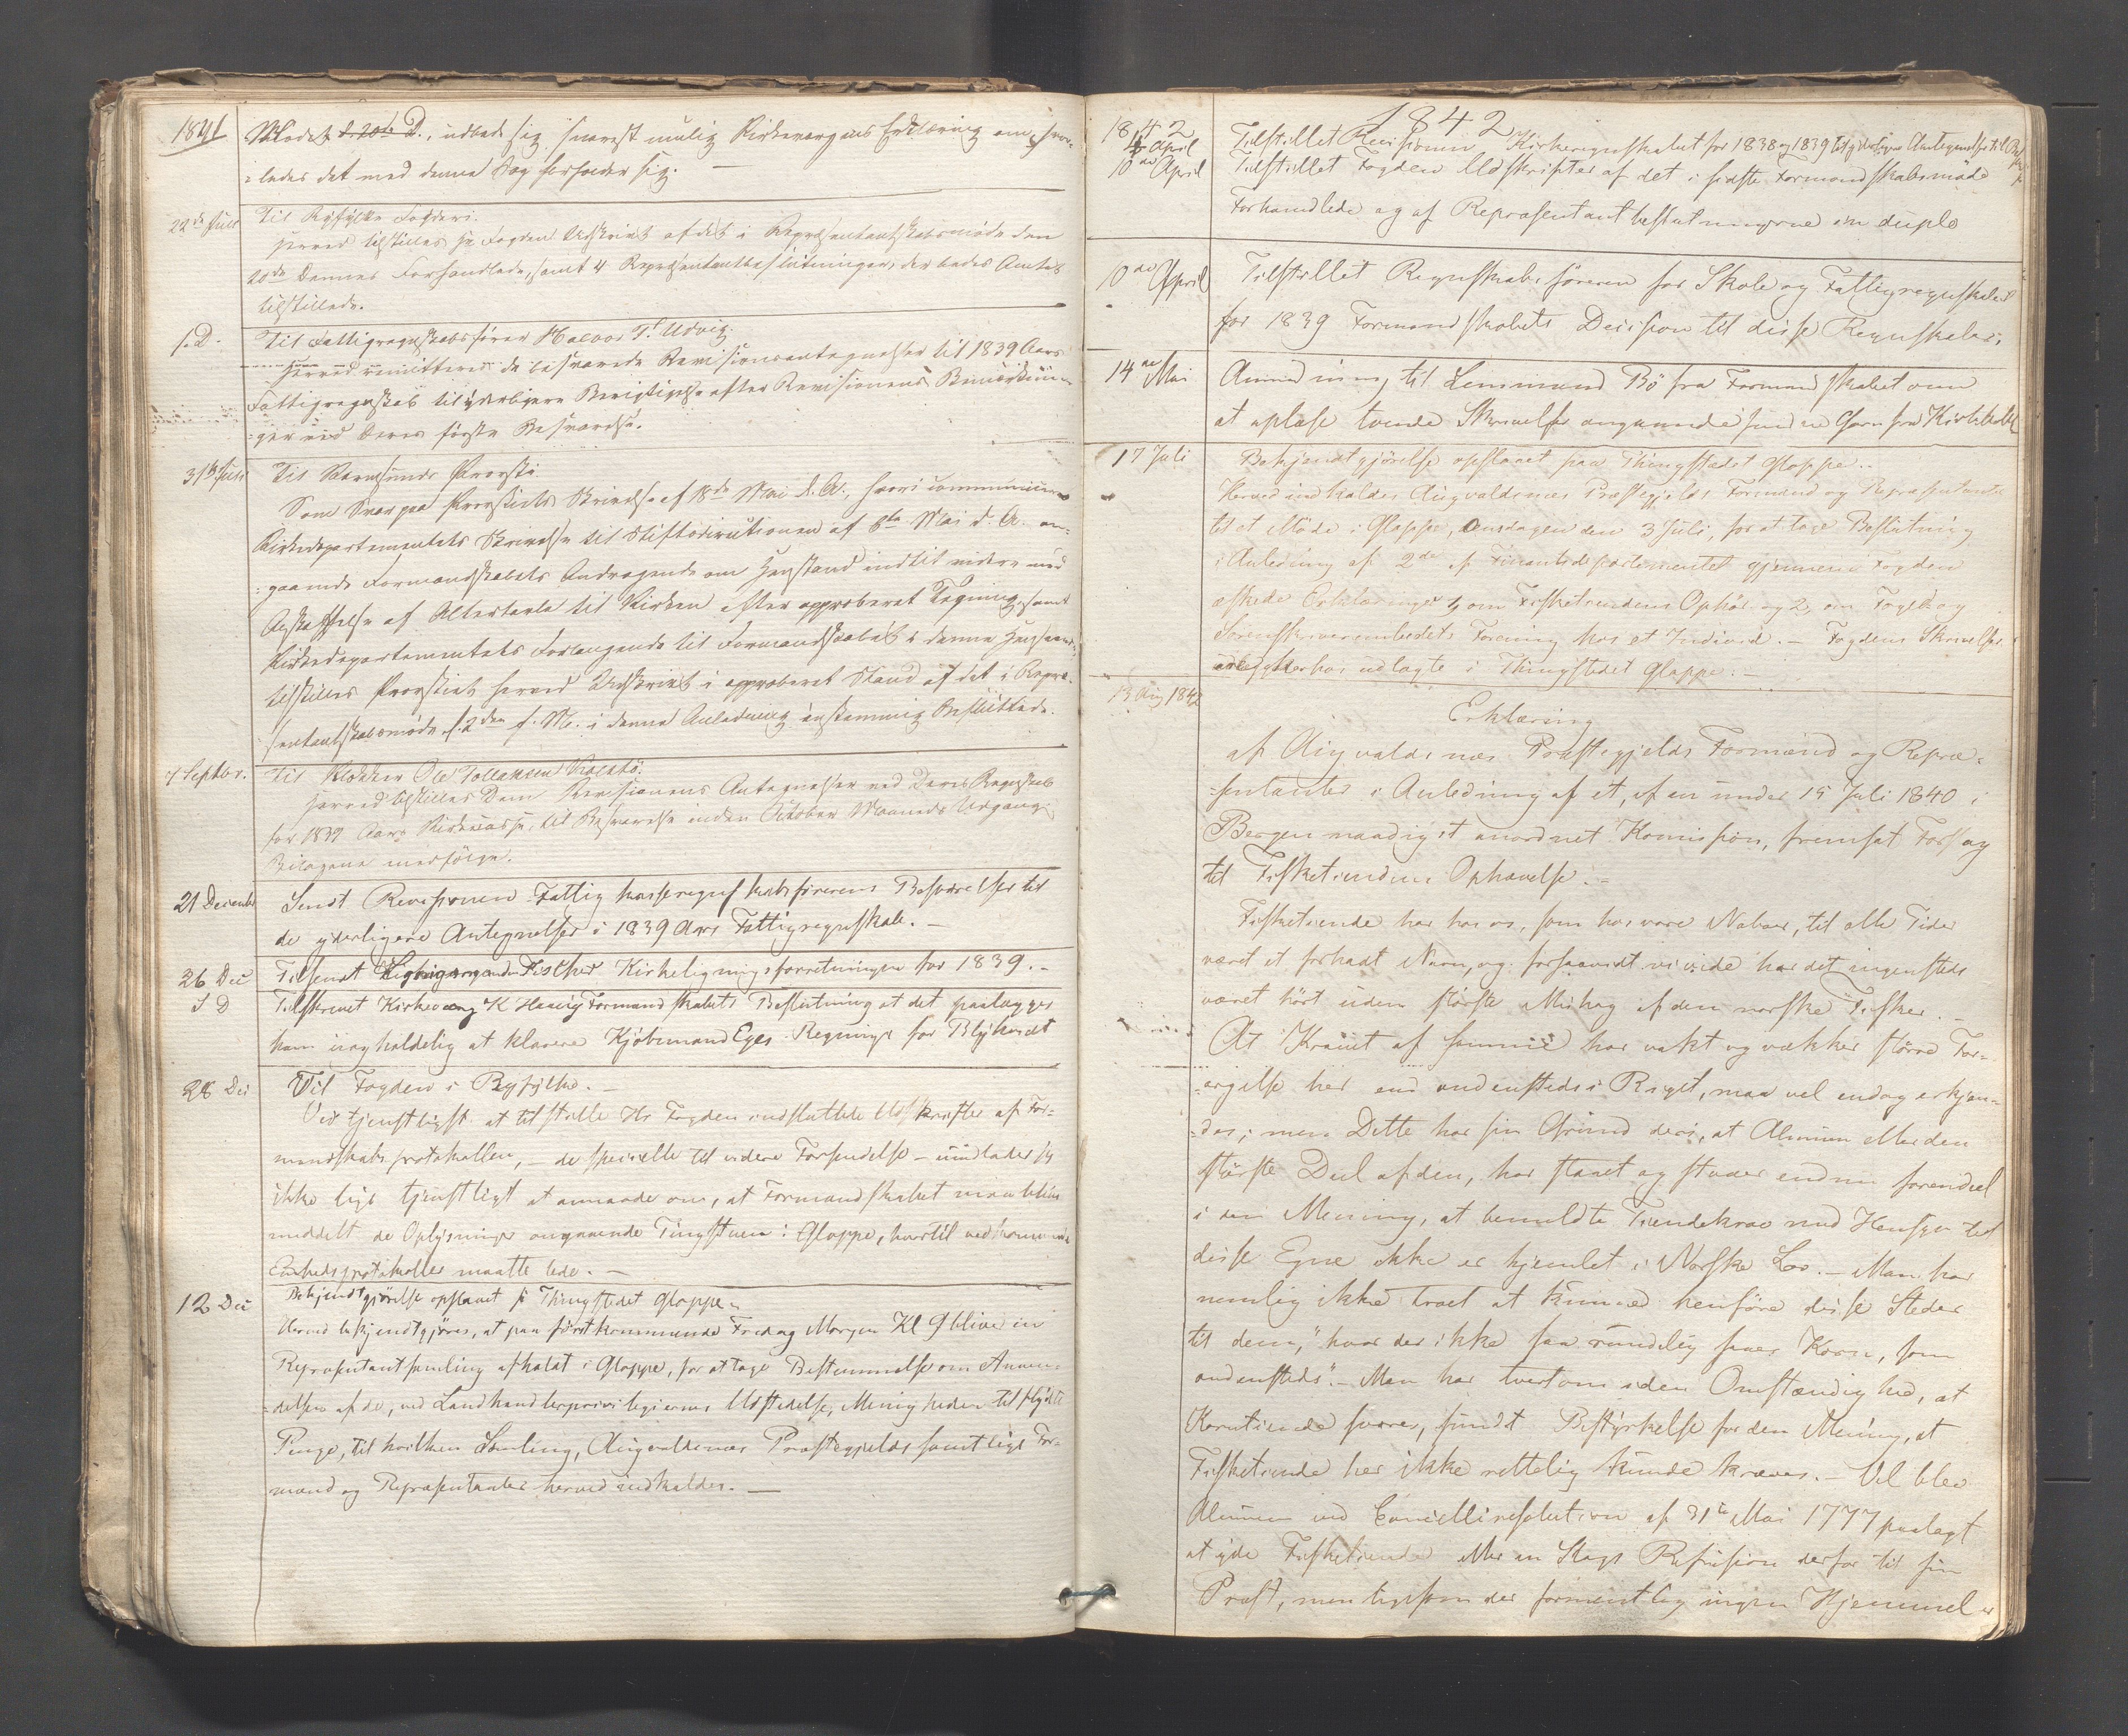 1841
Mødet d. 20de D., udbede sig snarest mulig Kirkevergens Erklæring om, hvor-
ledes det med denne Sag forholder sig.
22de Juli
Til Ryfylke Fogderi.
Herved tilstilles Hr. Fogden Udskrivt af det i Repræsentantskabsmøde den
20de Dennes Forhandlede, samt 4 Repræsentantbeslutninger, der bedes Amtet
tilstillede.
s. D.
Til Fattigregnskabsfører Halvor T. Udvig.
Herved remitteres de besvarede Revisionsantegnelser til 1839 Aars
Fattigregnskab til yderligere Berigtigelse efter Revisionens Bemærknin-
ger ved Deres første Besvarelse.
31te Juli
Til Karmsunds Provsti
Som Svar paa Provstiets Skrivelse af 18de Mai d. A., hvori communiceres
Kirkedepartementets Skrivelse til Stiftsdirectionen af 8de Mai d. A. an-
gaaende Formandskabets Andragende om Henstand indtil videre med
Anskaffelse af Altertavle til Kirken efter approberet Tegning, samt
Kirkedepartementets Forlangende til Formandskabet i denne Henseende,
tilstilles Provstiet herved Udskrivt i approberet Stand af det i Repræ-
sentantskabsmøde d. 2den f. M. i denne Anledning eenstemmig Besluttede.
7 Septbr.
Til Klokker Ole Tollaksen Kolstø.
Herved tilstilles Dem Revisionens Antegnelser ved Deres Regnskab
for 1839 Aars Kirkecasse, til Besvarelse inden October Maaneds Udgang.
Bilagene medfølger.
21 December
Sendt Revisionen Fattigkasseregnskabsførerens Besvarelser til
de yderligere Antegnelser i 1839 Aars Fattigregnskab. –
26 Dec
Tilsendt Fischer Kirkeligningsforretningen for 1839. –
S D
Tilskrevet Kirkeverg K Hauig Formandskabets Beslutning at det paalægges
ham uopholdelig at klarere Kjøbmand Eges Regning for Blyhvidt
28 Dec
Til Fogden i Ryfylke. –
Ved tjenstligst at tilstille Hr Fogden indsluttede Udskrifter af For-
mandskabsprotokollen, – de specielle til videre Forsendelse – undlader jeg
ikke lige tjenstligt at anmode om, at Formandskabet maa blive
meddelt de Oplysninger angaaende Tingstuen i Gloppe, hvortil vedkommende
Embedsprotokoller maatte lede. –
12 Dec
Bekjendtgjørelse opslaaet p. Thingstedet Gloppe.
Herved bekjendtgjøres, at paa førstkommende Fredag Morgen Kl 9 bliver en
Repræsentantsamling afholdt i Gloppe, for at tage Bestemmelse om Anven-
delsen af de, ved Landhandlerprivilegiernes Udstedelse, Menigheden tilflydte
Penge, til hvilken Samling, Augvaldsnæs Præstegjelds samtlige For-
mænd og Repræsentanter herved indkaldes. –
1842
1842
4 April
Tilstillet Revisionen Kirkeregnskabet for 1838 og 1839 Antegnelse til
10de April
Tilstillet Fogden Udskrifter af det i sidste Formandskabsmøde
Forhandlede og af Repræsentantbeslutningerne in duplo
10de April
Tilstillet Regnskabsføreren for Skole og Fattigregnskabet
for 1839 Formandskabets Decision til disse Regnskaber.
14de Mai
Anmodning til Lensmand Bø fra Formandskabet om
at oplæse tvende Skrivelser angaaende
17 Juli
Bekjendtgjörelse opslaaet paa Thingstedet Gloppe.
Herved indkaldes Augvaldsnæs Præstegjelds Formænd og Repræsentanter
til et Möde i Gloppe, Onsdagen den 3 Juli, for at tage Beslutning
i Anledning af 2de af Finantsdepartementet gjennem Fogden
æskede Erklæringer 1, om Fisketiendens Ophör og 2, om Foged og
Sorenskriverembedets Forening hos et Individ. – Fogdens Skrivelser
udlagte i Thingstedet Gloppe. –
13 Aug 1842
Erklæring
af Augvaldsnæs Præstegjelds Formænd og Repræ-
sentanter i Anledning af et, af en under 15 Juli 1840 i
Bergen naadigst anordnet Komission, fremsat Forslag
til Fisketiendens Ophævelse. –
Fisketiende har hos os, som hos vore Naboer, til alle Tider
været et forhadt Navn, og forsaavidt vi vide har det ingensteds
været hört uden störste Mishag af den norske Fisker. –
At Kravet af samme har vakt og vækker större For-
argelse her end andensteds i Riget, maa vel endog erkjen-
des; men Dette har sin Grund deri, at Almuen eller den
störste Deel af den, har staaet og staaer endnu forendeel
i den Mening, at bemeldte Tiendekrav med Hensyn til
disse Egne ikke er hjemlet i Norske Lov. – Man har
nemlig ikke troet at kunne henföre disse Steder
til dem, "hvor der ikke saa rundelig saaes Korn, som
andensteds". – Man har tvertom i den Omstændighed, at
Korntiende svares, fundet Bestyrkelse for den Mening, at
Fisketiende her ikke rettelig kunde kræves. – Vel blev
Almuen ved Cancelliresolution af 31te Mai 1777 paalagt
at yde Fisketiende eller en Slags Refusion derfor til sin
Præst, men ligesom der formentlig ingen Hjemmel er